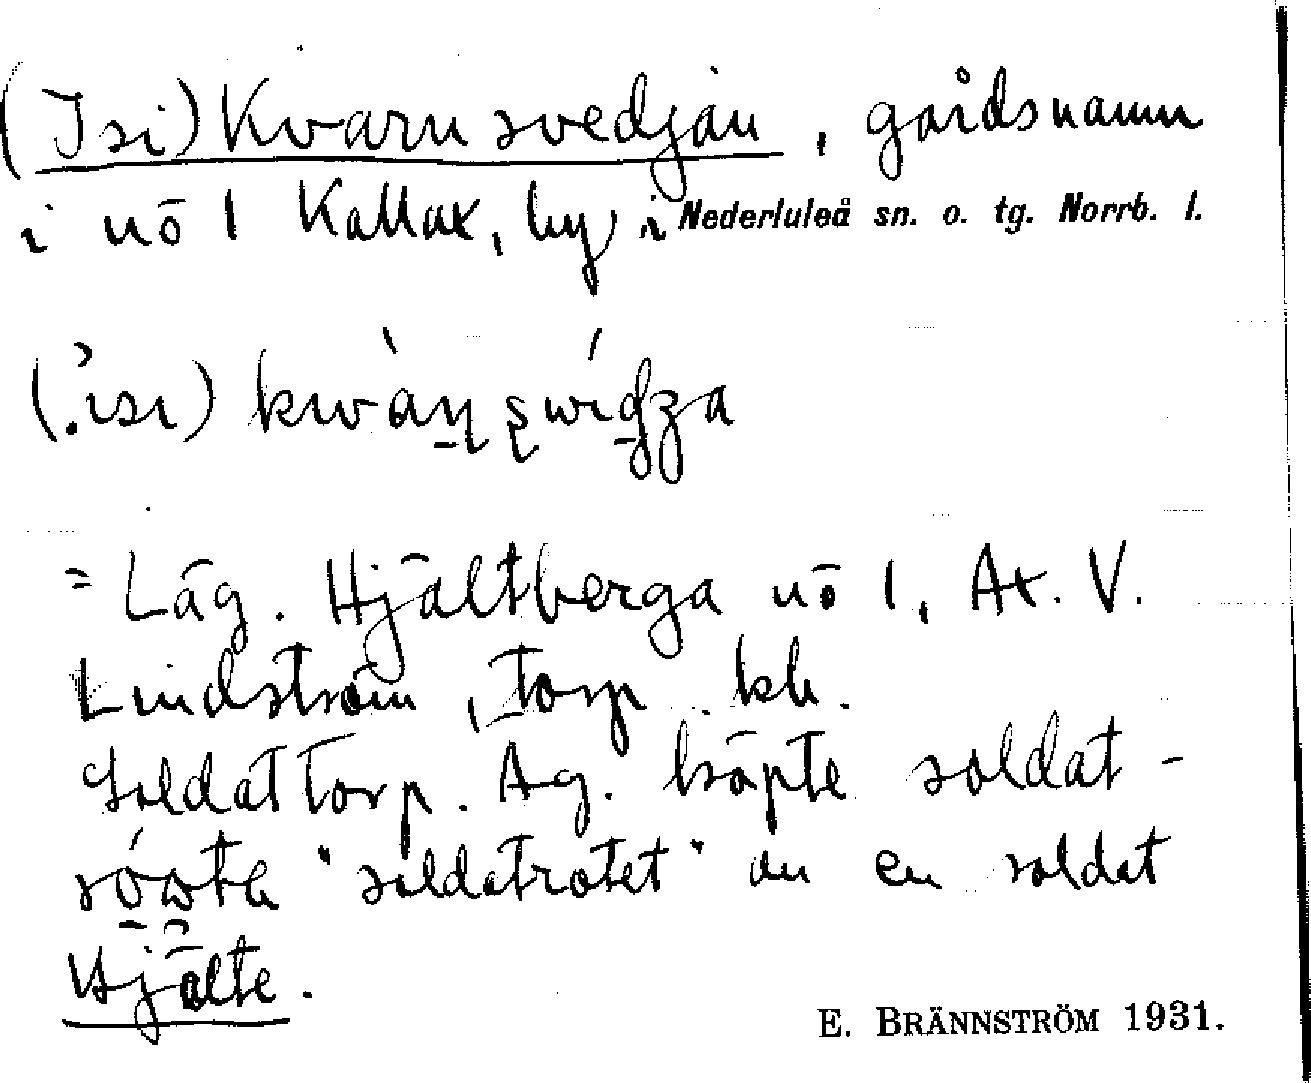 (Isi) Kvarnsvedjan, gårdsnamn
i nō 1 Kallax, by i Nederluleå sn. o. tg. Norrb. l.
(.ísi) kwàṇ ṣwíḍza
= Läg. Hjältberga nō 1, Ax. V.
Lindström, torp kh.
Soldattorp. Äg. köpte soldat-
"soldatrotet" au en soldat
Hjälte.
E. BRÄNNSTRÖM 1931.